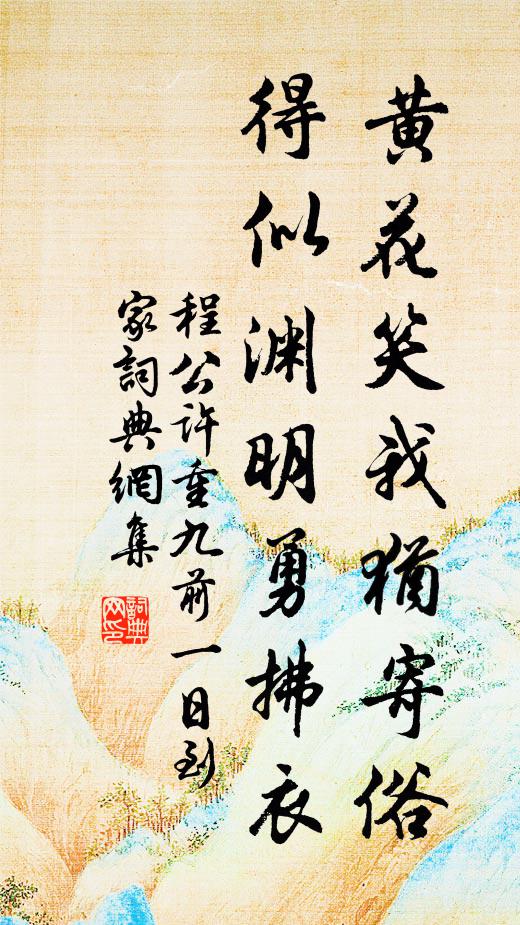 黄花笑我猶寄俗
得似渊明勇拂衣
程公許重九前一日到
家詞典網集
詞典
网印